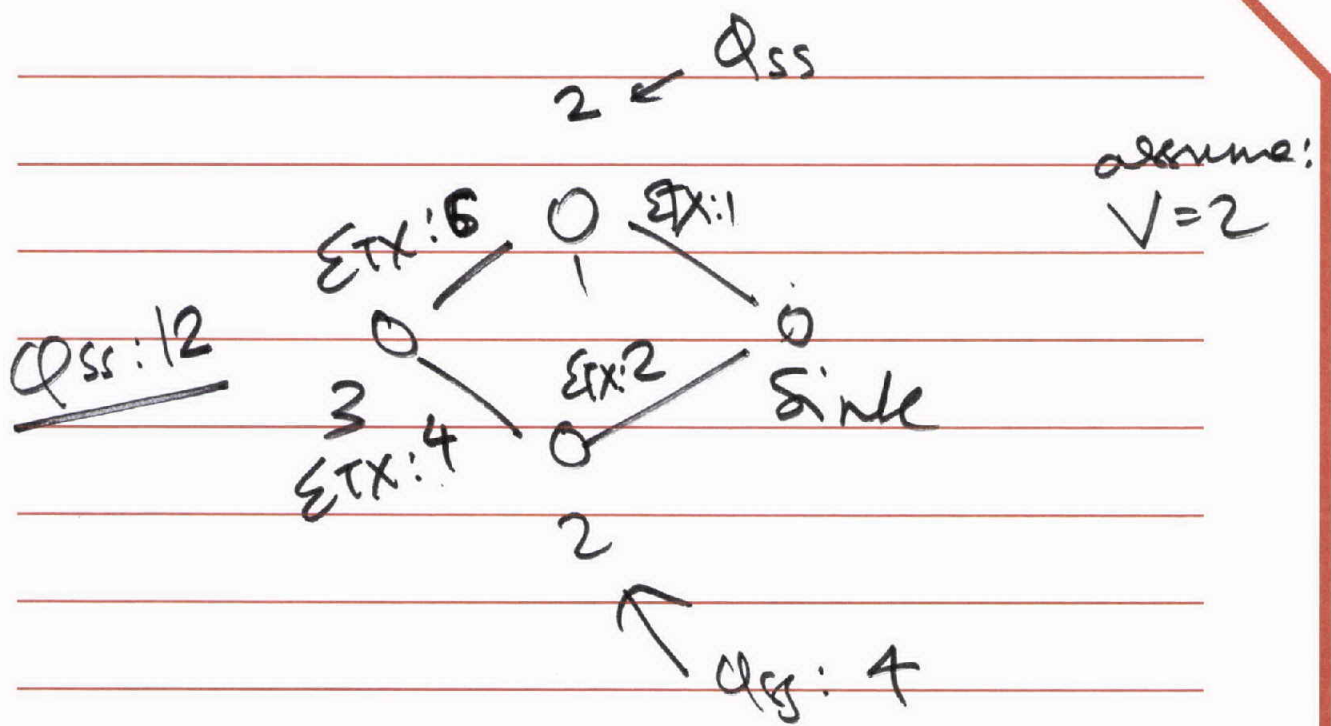 Qss
2
assume:
V=2
ETX:6
ETX:1
1
Qss:12
ETX:2
Sink
3
ETX:4
2
Qss: 4